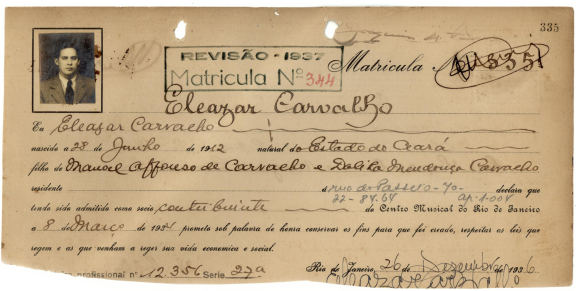 335
REVISÃO - 1937
Matricula Nº 344
Matricula Nº 335
Eleazar Carvalho
Eu Eleazar Carvalho
nascido a 28 Junho de 1912 natural do Estado do Ceará
filho de Manoel Affonso de Carvalho e Dalila Mendonça Carvalho
residente á rua do Passeio 70 declara que
22-8464 ap. 1.004
tendo sido admitido como socio contribuinte do Centro Musical do Rio de Janeiro
a 8 de Março de 1934 prometo sob palavra de honra conservar os fins para que foi creado, respeitar as leis que
regem e as que venham a reger sua vida economica e social.
Rio de Janeiro, 26 de Dezembro de 1936
profissional nº 12.356 Serie 27a